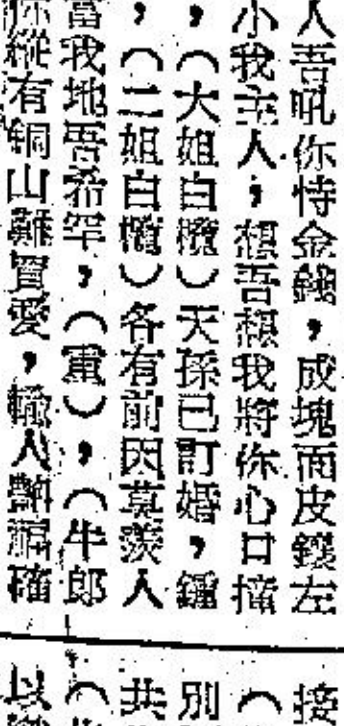 人吾吼你恃金錢，成塊面皮鑊左
小我主人，想吾想我將你心口撞
，（大姐白欖）天孫已訂婚，鍾
，（二姐白欖）各有前因莫羨人
富我地吾希罕，（重），（牛郎
你縱有銅山難買愛，輸人豔福確
接
（
別
共
（
以